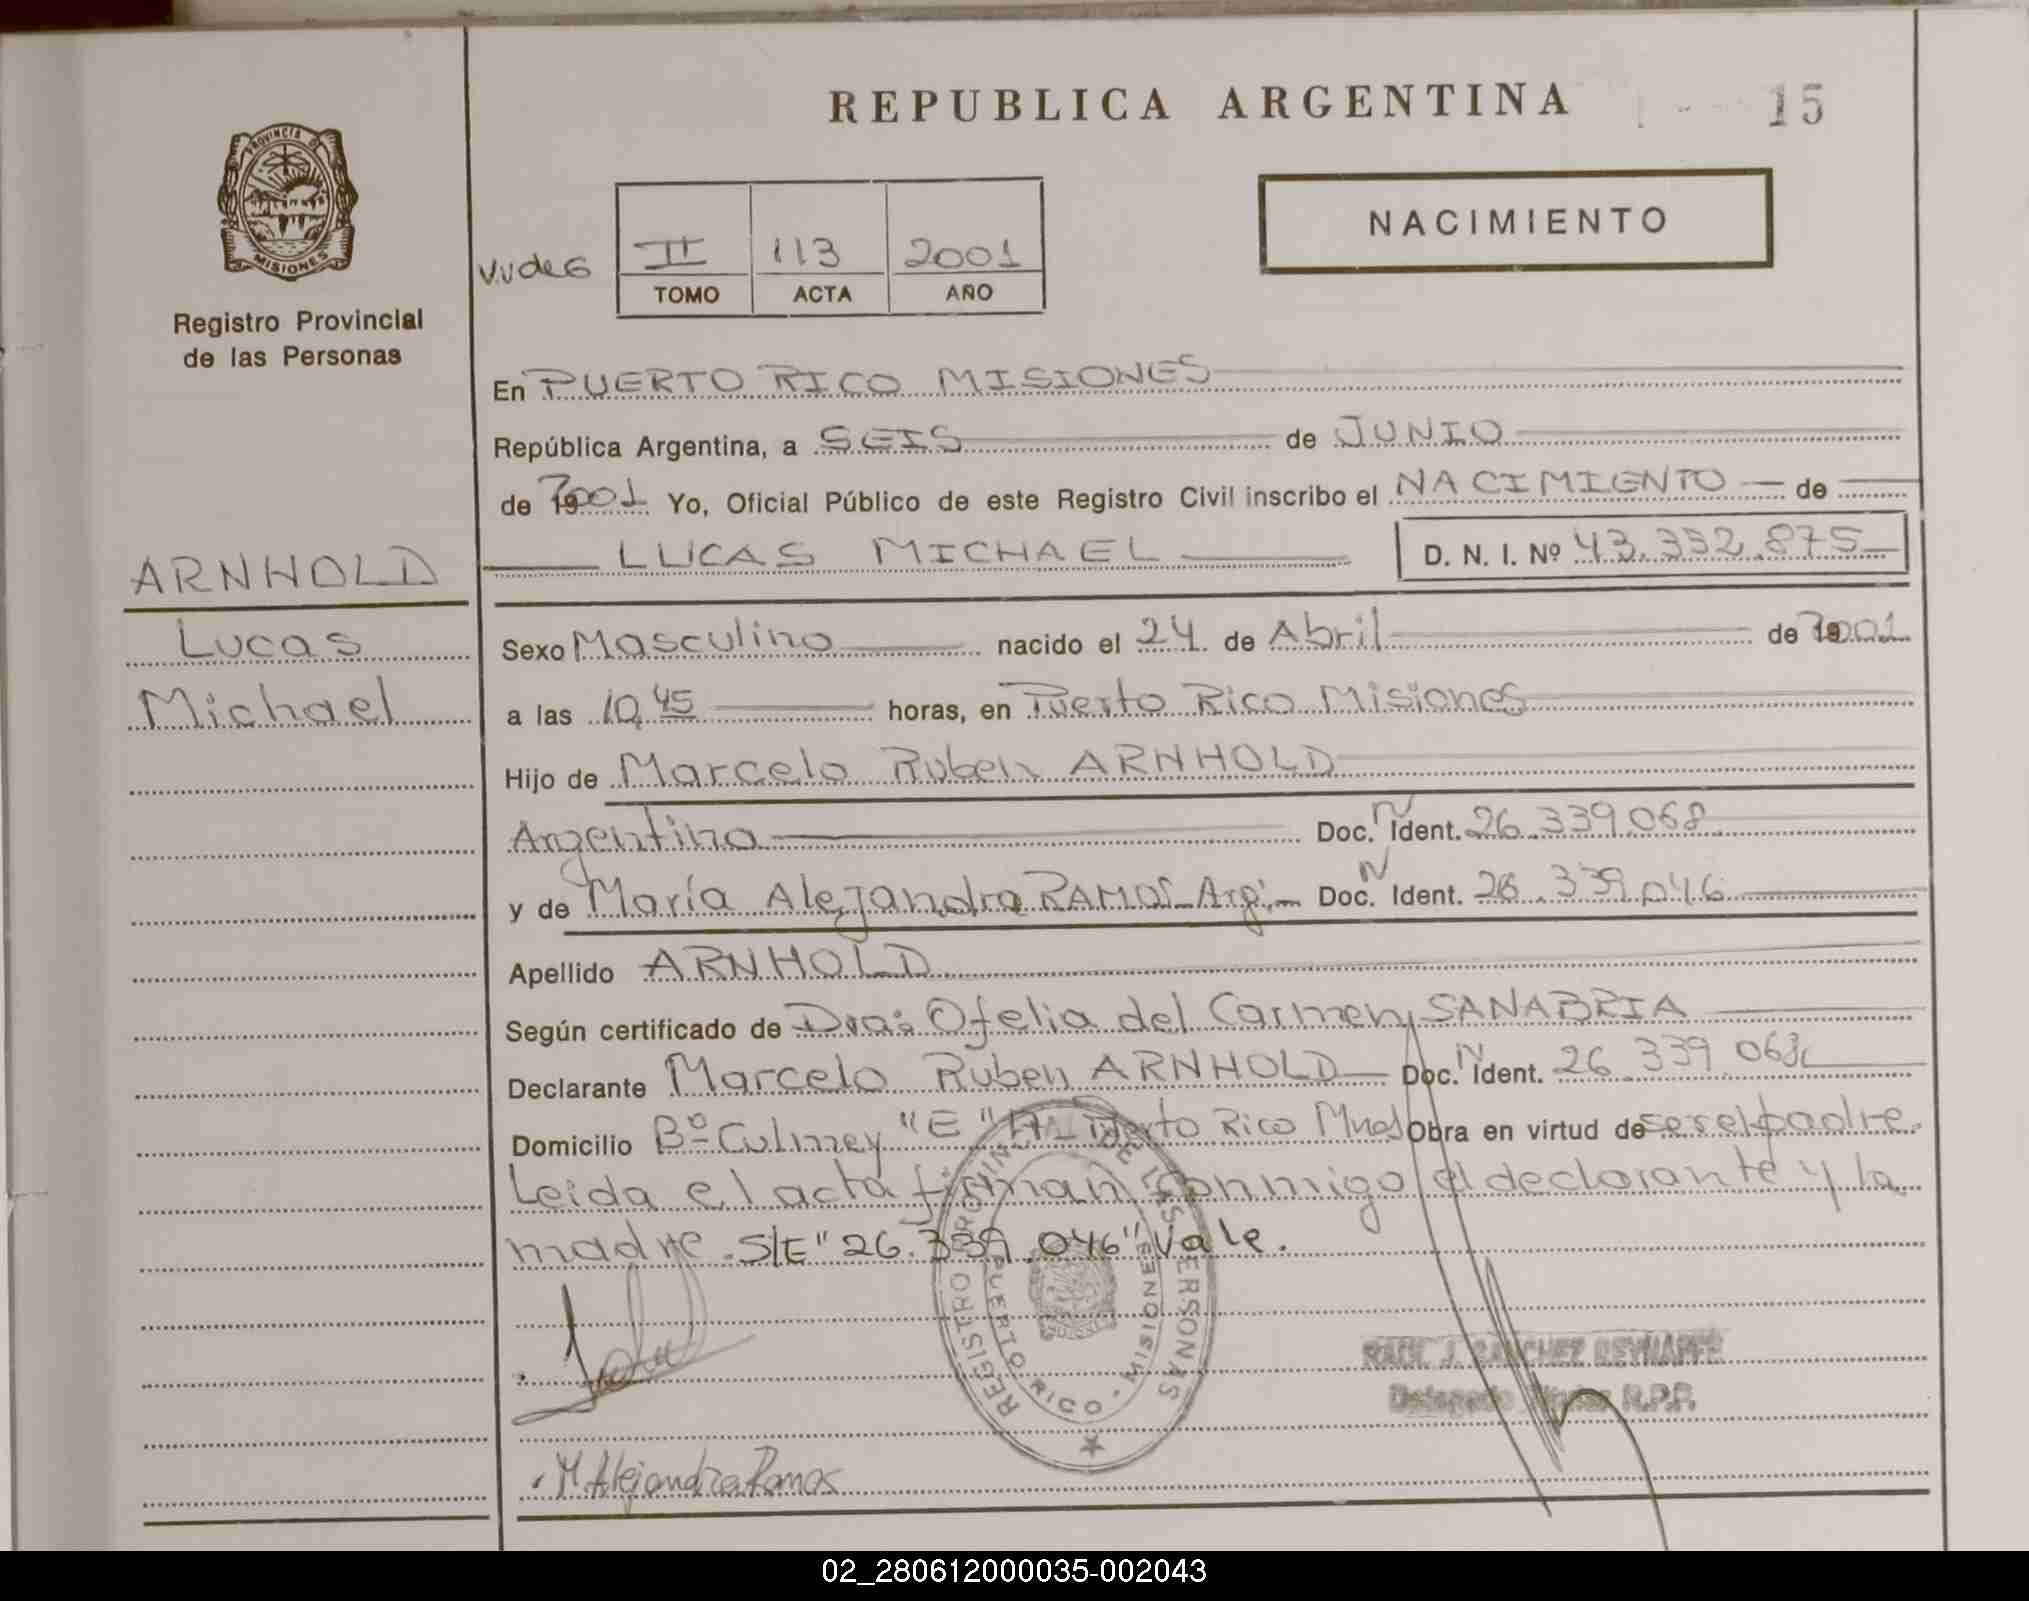 REPUBLICA ARGENTINA
15
PROVINCIA DE
MISIONES
Registro Provincial
de las Personas
NACIMIENTO
II 113 2001
TOMO ACTA AÑO
En PUERTO RICO MISIONES
República Argentina, a SEIS de JUNIO
de 2001 Yo, Oficial Público de este Registro Civil inscribo el NACIMIENTO de
LUCAS MICHAEL D. N. I. Nº 43.332.875
ARNHOLD
Lucas
Michael
Sexo Masculino nacido el 24 de Abril de 2001
a las 10,45 horas, en Puerto Rico Misiones
Hijo de Marcelo Ruben ARNHOLD
Argentino Doc. N Ident. 26.339.068
y de María Alejandra RAMOS Arg. Doc. N Ident. 26.339.046
Apellido ARNHOLD
Según certificado de Dra: Ofelia del Carmen SANABRIA
Declarante Marcelo Ruben ARNHOLD Doc. N Ident. 26.339.068
Domicilio Bº Culmey "E" Puerto Rico Mnes Obra en virtud de ser el padre.
Leida el acta firman conmigo el declarante y la
madre. S/E "26.339.046" Vale.
REGISTRO PROVINCIAL DE LAS PERSONAS
PUERTO RICO - MISIONES
RAUL J. SANCHEZ
Delegado Titular R.P.P.
M. Alejandra Ramos
02_280612000035-002043